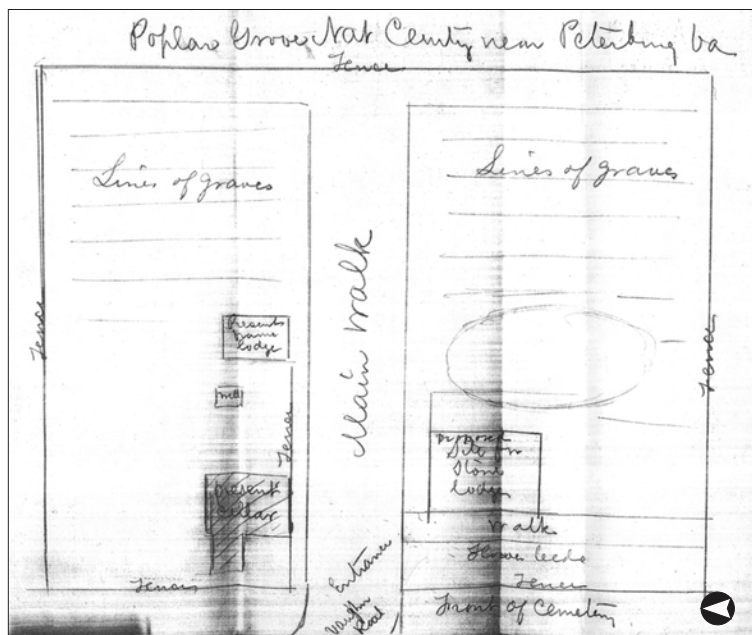 Poplar Grove Nat Cemty near Petersburg Va
Fence
Lines of graves
Lines of graves
Main Walk
Fence
Fence
Presents
frame
lodge
well
Fence
present
cellar
proposed
Site for
Stone
lodge
Walk
Flower beds
Fence
Fence
Entrance
Vaughn
Road
Front of Cemetery